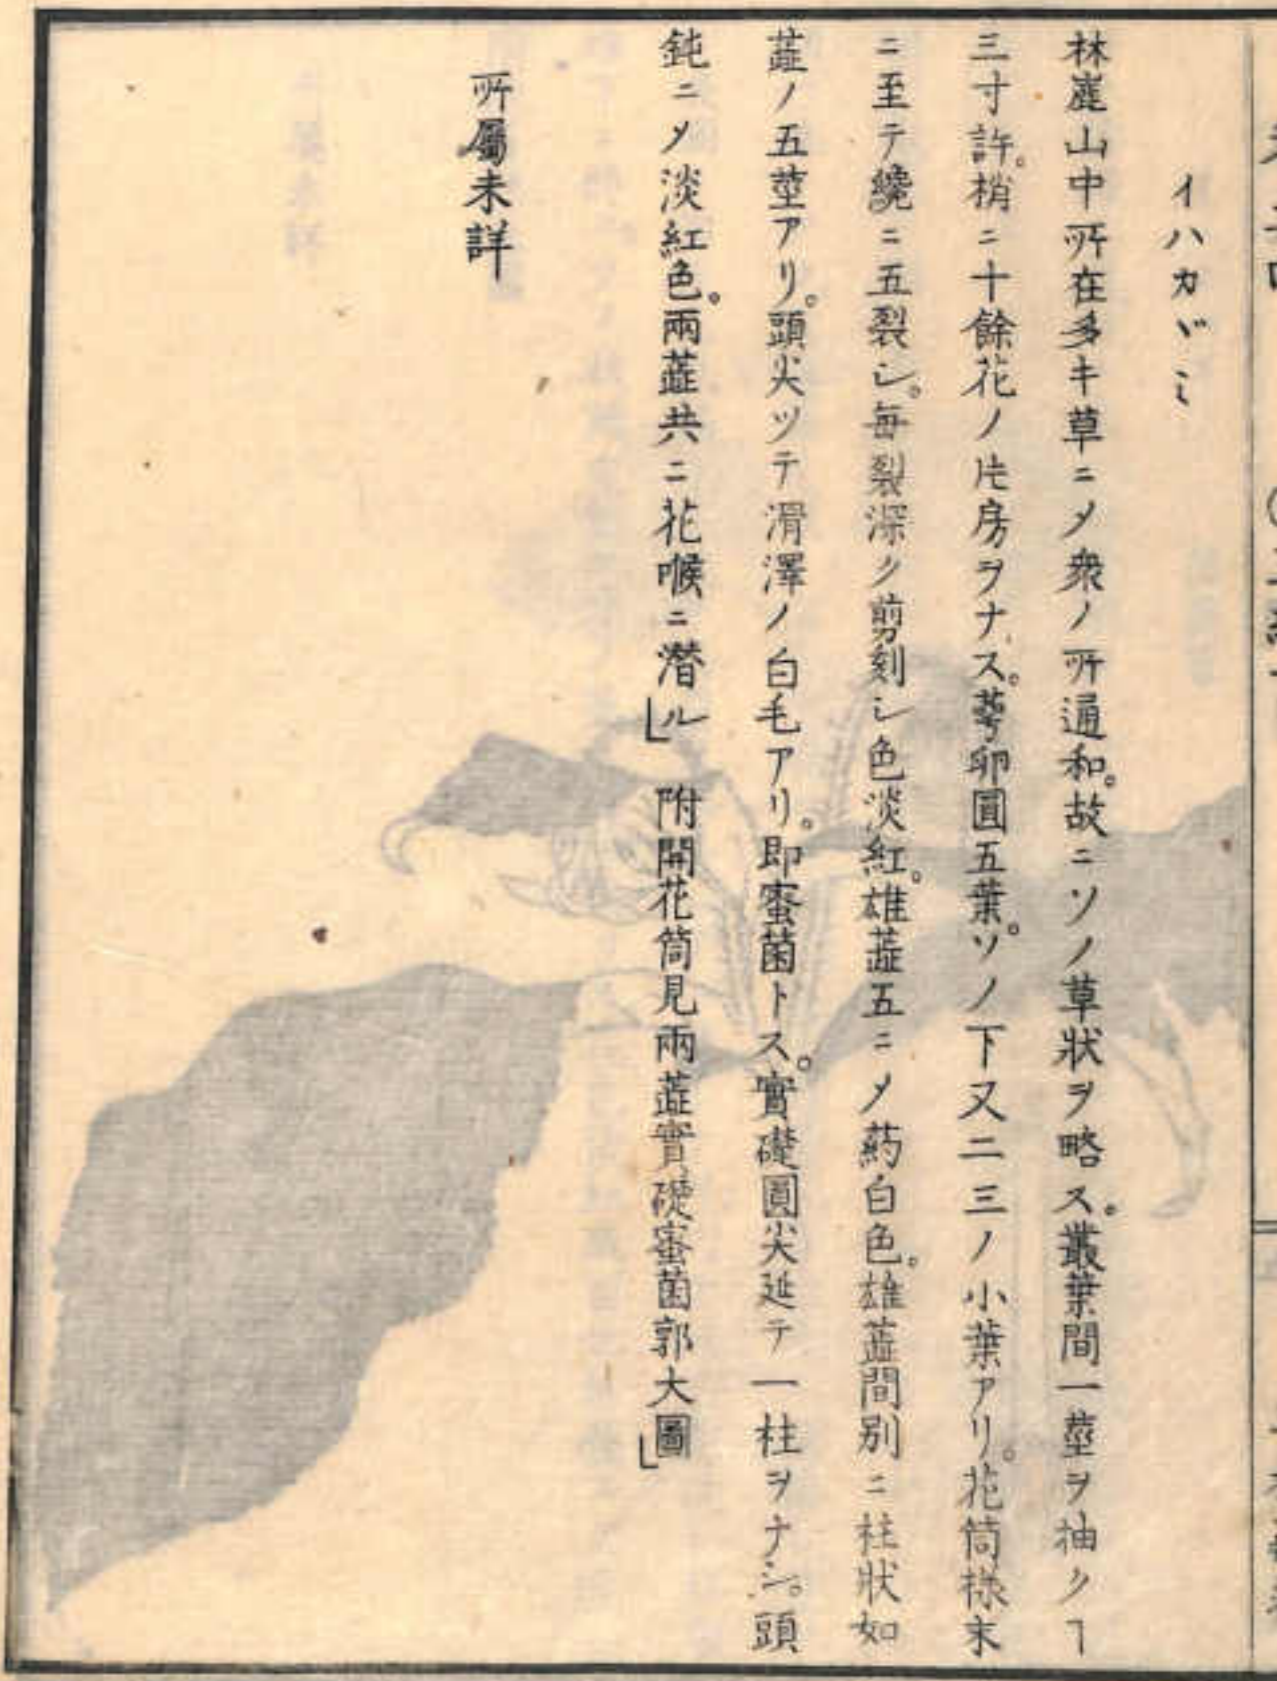 イハカヾミ
林麓山中所在多キ草ニメ衆ノ所通和。故ニソノ草狀ヲ略ス。叢葉間一莖ヲ抽クヿ
三寸許。梢ニ十餘花ノ片房ヲナス。萼卵圓五葉。ソノ下又二三ノ小葉アリ。花筒樣末
ニ至テ纔ニ五裂シ。每裂深ク剪刻シ色淡紅。雄蕋五ニメ葯白色。雄蕋間別ニ柱狀如
蕋ノ五莖アリ。頭尖ツテ滑澤ノ白毛アリ。即蜜菌トス。實礎圓尖延テ一柱ヲナシ。頭
鈍ニメ淡紅色。兩蕋共ニ花喉ニ潛ル」 附開花筒見兩蕋實礎蜜菌郭大圖」
所屬未詳